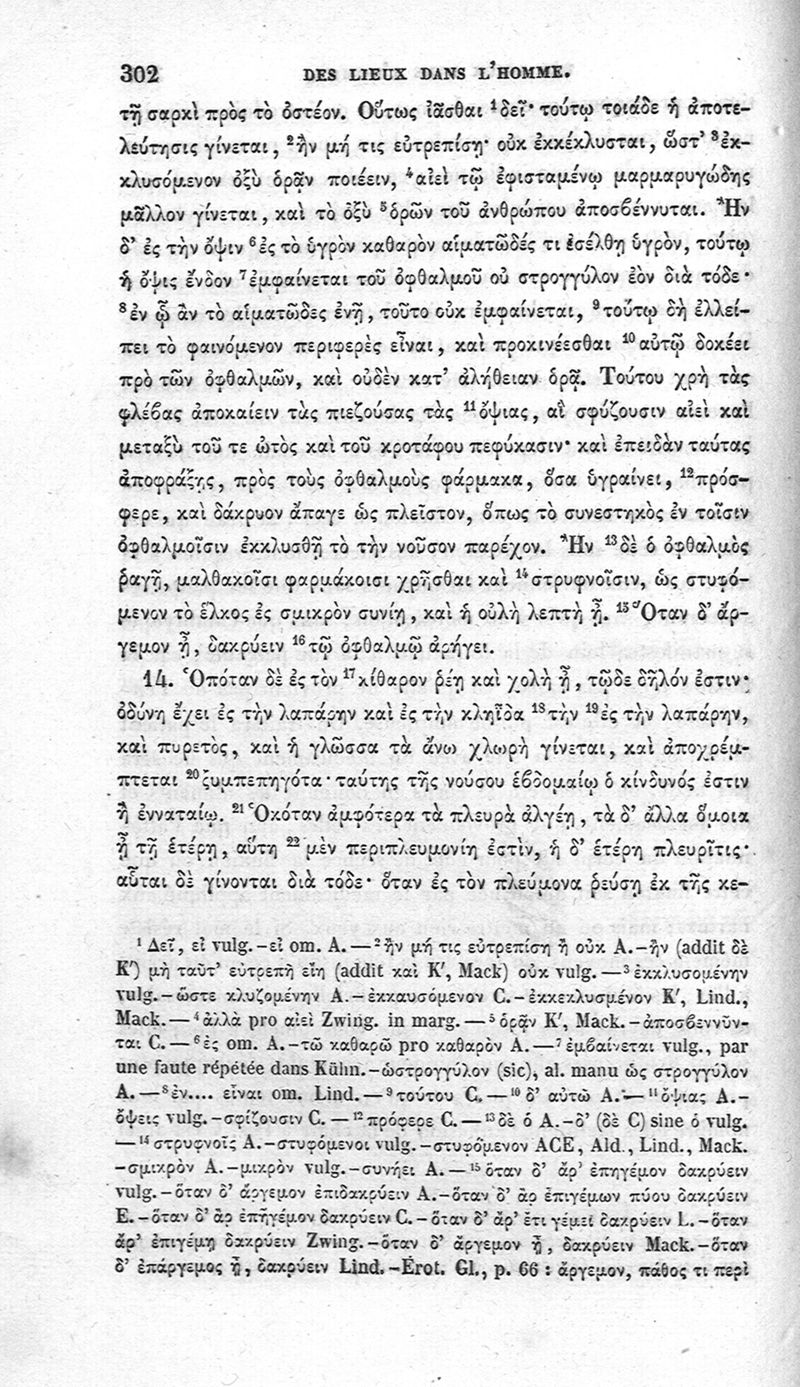 302 DES LIEUX DANS L'HOMME.
τῇ σαρκὶ πρὸς τὸ ὀστέον. Οὕτως ἰᾶσθαι ¹δεῖ· τούτῳ τοιάδε ἡ ἀποτε-
λεύτησις γίνεται, ²ἢν μή τις εὐτρεπίσῃ· οὐκ ἐκκέκλυσται, ὥστ’ ³ἐκ-
κλυσόμενον ὀξὺ ὁρᾷν ποιέειν, ⁴αἰεὶ τῷ ἐφισταμένῳ μαρμαρυγώδης
μᾶλλον γίνεται, καὶ τὸ ὀξὺ ⁵ὁρῶν τοῦ ἀνθρώπου ἀποσϐέννυται. Ἢν
δ’ ἐς τὴν ὄψιν ⁶ἐς τὸ ὑγρὸν καθαρὸν αἱματῶδές τι ἐσέλθῃ ὑγρὸν, τούτῳ
ἡ ὄψις ἔνδον ⁷ἐμφαίνεται τοῦ ὀφθαλμοῦ οὐ στρογγύλον ἐὸν διὰ τόδε·
⁸ἐν ᾧ ἂν τὸ αἱματῶδες ἐνῇ, τοῦτο οὐκ ἐμφαίνεται, ⁹τούτῳ δὴ ἐλλεί-
πει τὸ φαινόμενον περιφερὲς εἶναι, καὶ προκινέεσθαι ¹⁰αὐτῷ δοκέει
πρὸ τῶν ὀφθαλμῶν, καὶ οὐδὲν κατ’ ἀλήθειαν ὁρᾷ. Τούτου χρὴ τὰς
φλέϐας ἀποκαίειν τὰς πιεζούσας τὰς ¹¹ὄψιας, αἳ σφύζουσιν αἰεὶ καὶ
μεταξὺ τοῦ τε ὠτὸς καὶ τοῦ κροτάφου πεφύκασιν· καὶ ἐπειδὰν ταύτας
ἀποφράξῃς, πρὸς τοὺς ὀφθαλμοὺς φάρμακα, ὅσα ὑγραίνει, ¹²πρόσ-
φερε, καὶ δάκρυον ἄπαγε ὡς πλεῖστον, ὅπως τὸ συνεστηκὸς ἐν τοῖσιν
ὀφθαλμοῖσιν ἐκκλυσθῇ τὸ τὴν νοῦσον παρέχον. Ἢν ¹³δὲ ὁ ὀφθαλμὸς
ῥαγῇ, μαλθακοῖσι φαρμάκοισι χρῆσθαι καὶ ¹⁴στρυφνοῖσιν, ὡς στυφό-
μενον τὸ ἕλκος ἐς σμικρὸν συνίῃ, καὶ ἡ οὐλὴ λεπτὴ ᾖ. ¹⁵Ὅταν δ’ ἄρ-
γεμον ᾖ, δακρύειν ¹⁶τῷ ὀφθαλμῷ ἀρήγει.
14. Ὁπόταν δὲ ἐς τὸν ¹⁷κίθαρον ῥέῃ καὶ χολὴ ᾖ, τῷδε δῆλόν ἐστιν·
ὀδύνη ἔχει ἐς τὴν λαπάρην καὶ ἐς τὴν κληῖδα ¹⁸τὴν ¹⁹ἐς τὴν λαπάρην,
καὶ πυρετὸς, καὶ ἡ γλῶσσα τὰ ἄνω χλωρὴ γίνεται, καὶ ἀποχρέμ-
πτεται ²⁰ξυμπεπηγότα· ταύτης τῆς νούσου ἑϐδομαίῳ ὁ κίνδυνός ἐστιν
ἢ ἐνναταίῳ. ²¹Ὁκόταν ἀμφότερα τὰ πλευρὰ ἀλγέῃ, τὰ δ’ ἄλλα ὅμοια
ᾖ τῇ ἑτέρῃ, αὕτη ²²μὲν περιπλευμονίη ἐστὶν, ἡ δ’ ἑτέρη πλευρῖτις·
αὗται δὲ γίνονται διὰ τόδε· ὅταν ἐς τὸν πλεύμονα ῥεύσῃ ἐκ τῆς κε-
¹ Δεῖ, εἰ vulg.-εἰ om. A.—²ἢν μή τις εὐτρεπίσῃ ἢ οὐκ A.-ἢν (addit δὲ
K′) μὴ ταῦτ’ εὐτρεπῆ εἴη (addit καὶ K′, Mack) οὐκ vulg.—³ἐκκλυσομένην
vulg.-ὥστε κλυζομένην A.-ἐκκαυσόμενον C.-ἐκκεκλυσμένον K′, Lind.,
Mack.—⁴ἀλλὰ pro αἰεὶ Zwing. in marg.—⁵ὁρᾷν K′, Mack.-ἀποσϐεννῦν-
ται C.—⁶ἐς om. A.-τῷ καθαρῷ pro καθαρὸν A.—⁷ἐμϐαίνεται vulg., par
une faute répétée dans Kühn.-ὡστρογγύλον (sic), al. manu ὡς στρογγύλον
A.—⁸ἐν.... εἶναι om. Lind.—⁹τούτου C.—¹⁰δ’ αὐτῷ A.—¹¹ὄψιας A.-
ὄψεις vulg.-σφίζουσιν C.—¹²πρόφερε C.—¹³δὲ ὁ A.-δ’ (δὲ C) sine ὁ vulg.
—¹⁴στρυφνοῖς A.-στυφόμενοι vulg.-στυφόμενον ACE, Ald., Lind., Mack.
-σμικρὸν A.-μικρὸν vulg.-συνήει A.—¹⁵ὅταν δ’ ἄρ’ ἐπηγέμον δακρύειν
vulg.-ὅταν δ’ ἄργεμον ἐπιδακρύειν A.-ὅταν δ’ ἂρ ἐπιγέμων πύου δακρύειν
E.-ὅταν δ’ ἂρ ἐπήγέμον δακρύειν C.-ὅταν δ’ ἄρ’ ἔτι γέμει δακρύειν L.-ὅταν
ἄρ’ ἐπιγέμῃ δακρύειν Zwing.-ὅταν δ’ ἄργεμον ᾖ, δακρύειν Mack.-ὅταν
δ’ ἐπάργεμος ᾖ, δακρύειν Lind.-Érot. Gl., p. 66 : ἄργεμον, πάθος τι περὶ